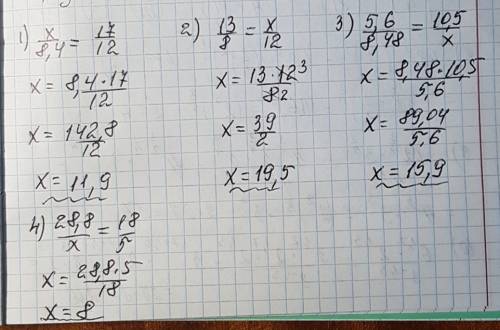 1) x/8,4 = 17/12
x = 8,4·17/12
x = 142,8/12
x = 11,9
2) 13/8 = x/12
x = 13·12³/8 2
x = 39/2
x = 19,5
3) 5,6/8,48 = 10,5/x
x = 8,48·10,5/5,6
x = 89,04/5,6
x = 15,9
4) 28,8/x = 18/5
x = 28,8·5/18
x = 8